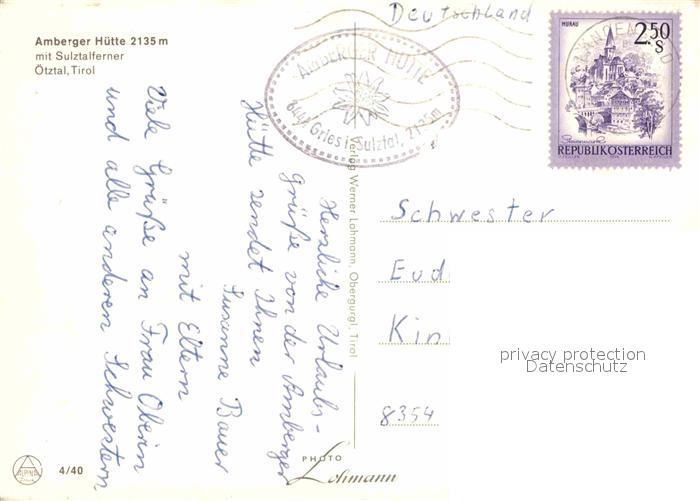 Amberger Hütte 2135 m
mit Sulztalferner
Ötztal, Tirol
Deutschland
AMBERGER HÜTTE
6444 Gries i. Sulztal, 2135m
MURAU
2.50
S
REPUBLIK ÖSTERREICH
Herzliche Urlaubs-
grüße von der Amberger
Hütte sendet Ihnen
Susanne Bauer
mit Eltern
Viele Grüße an Frau Oberin
und alle anderen Schwestern
Verlag Werner Lohmann, Obergurgl, Tirol
Schwester
Eud
Kin
8354
privacy protection
Datenschutz
PHOTO
Lohmann
ALPINA
4/40